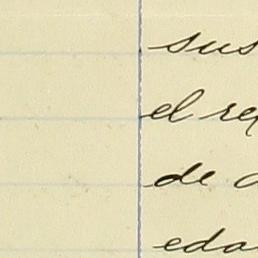 sus
el re
de
eda